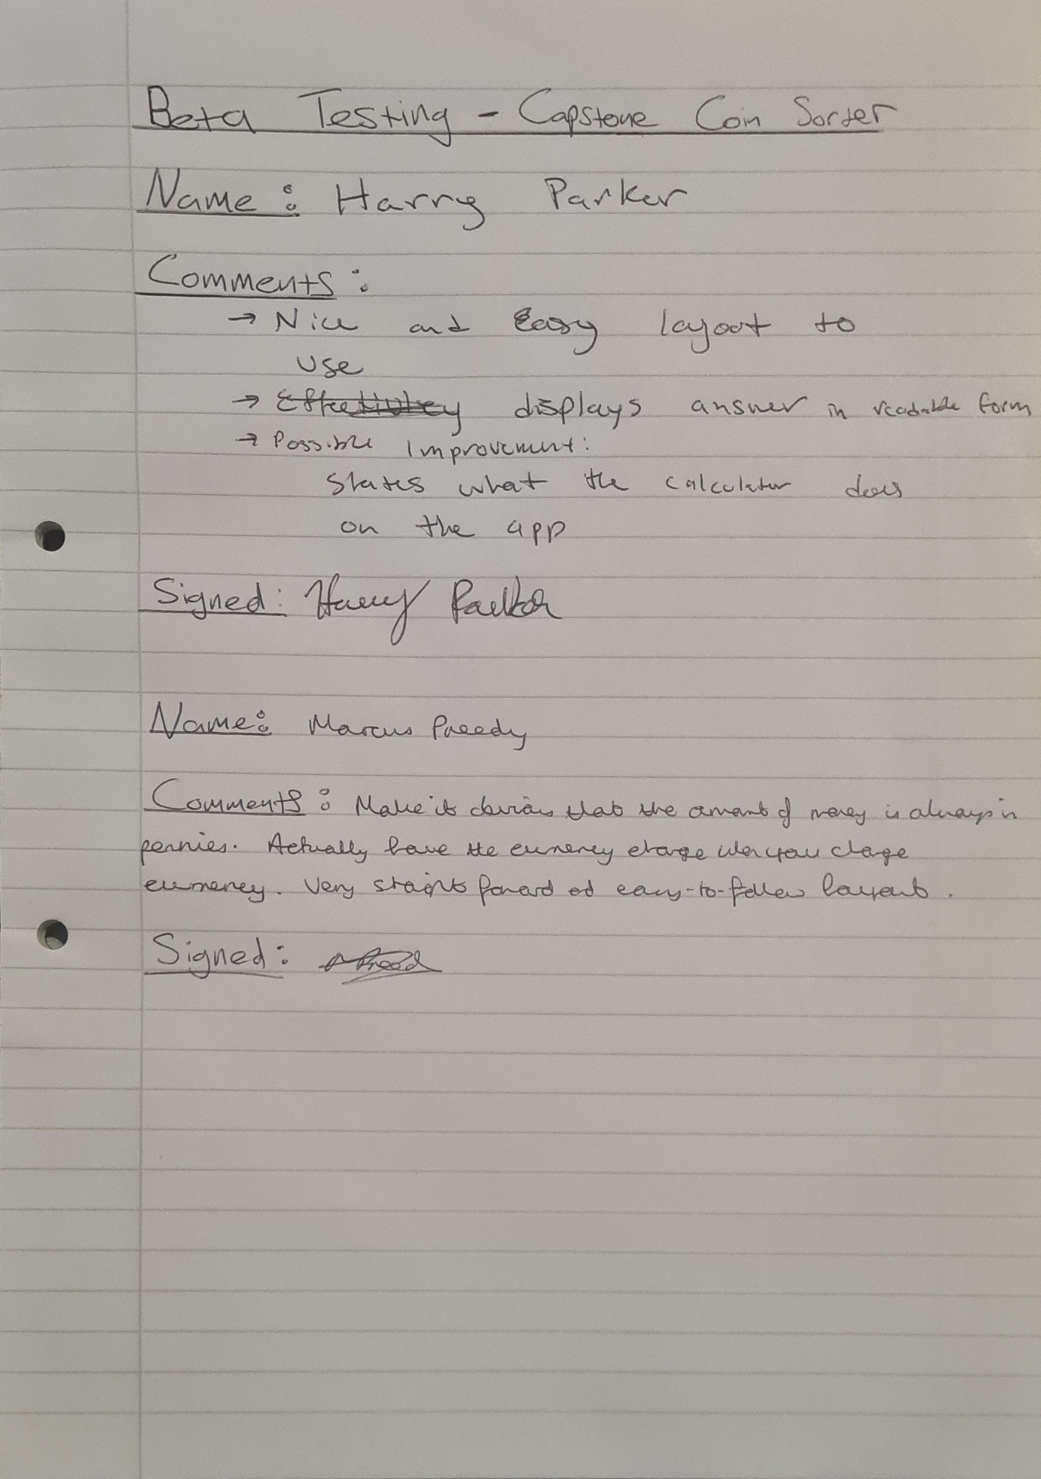 Beta Testing - Capstone Coin Sorter
Name: Harry Parker
Comments:
→ Nice and Easy layout to
use
→ Effectivley displays answer in readable form
→ Possible Improvement:
States what the calculator does
on the app
Signed: Harry Parker
Name: Marcus Preedy
Comments: Make it obvious that the amount of money is always in
pennies. Actually have the currency change when you change
currency. Very straight forward and easy-to-follow layout.
Signed: